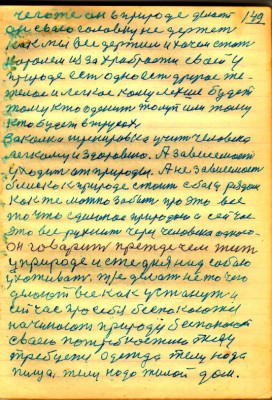 чегоже он в природе делает 149
он свою головку не держит
как мы все держим и хочем стать
королем из за храбрости своей у
природе ест одно ест другое тя-
желое и легкое кому легше будет
тому кто оденит толуп или тому
кто будет в трусах
Закалка тренировка учит человека
легкому и здоровию. А зависимость
уходит от природы. А не зависимост
близко к природе стоит с ею рядом
как же можно забыт про это все
то что сделано природою а сейчас
это все рушит чере человека одного-
он говорит прежде чем жит
у природе и сже дня над собою
ухаживат. же делат не то чего
делают все как устанут и
сейчас про себя беспокоются
начинают природу беспокоит
своею потребностию телу
требуется одежда телу надо
пища, телу надо жилой дом.